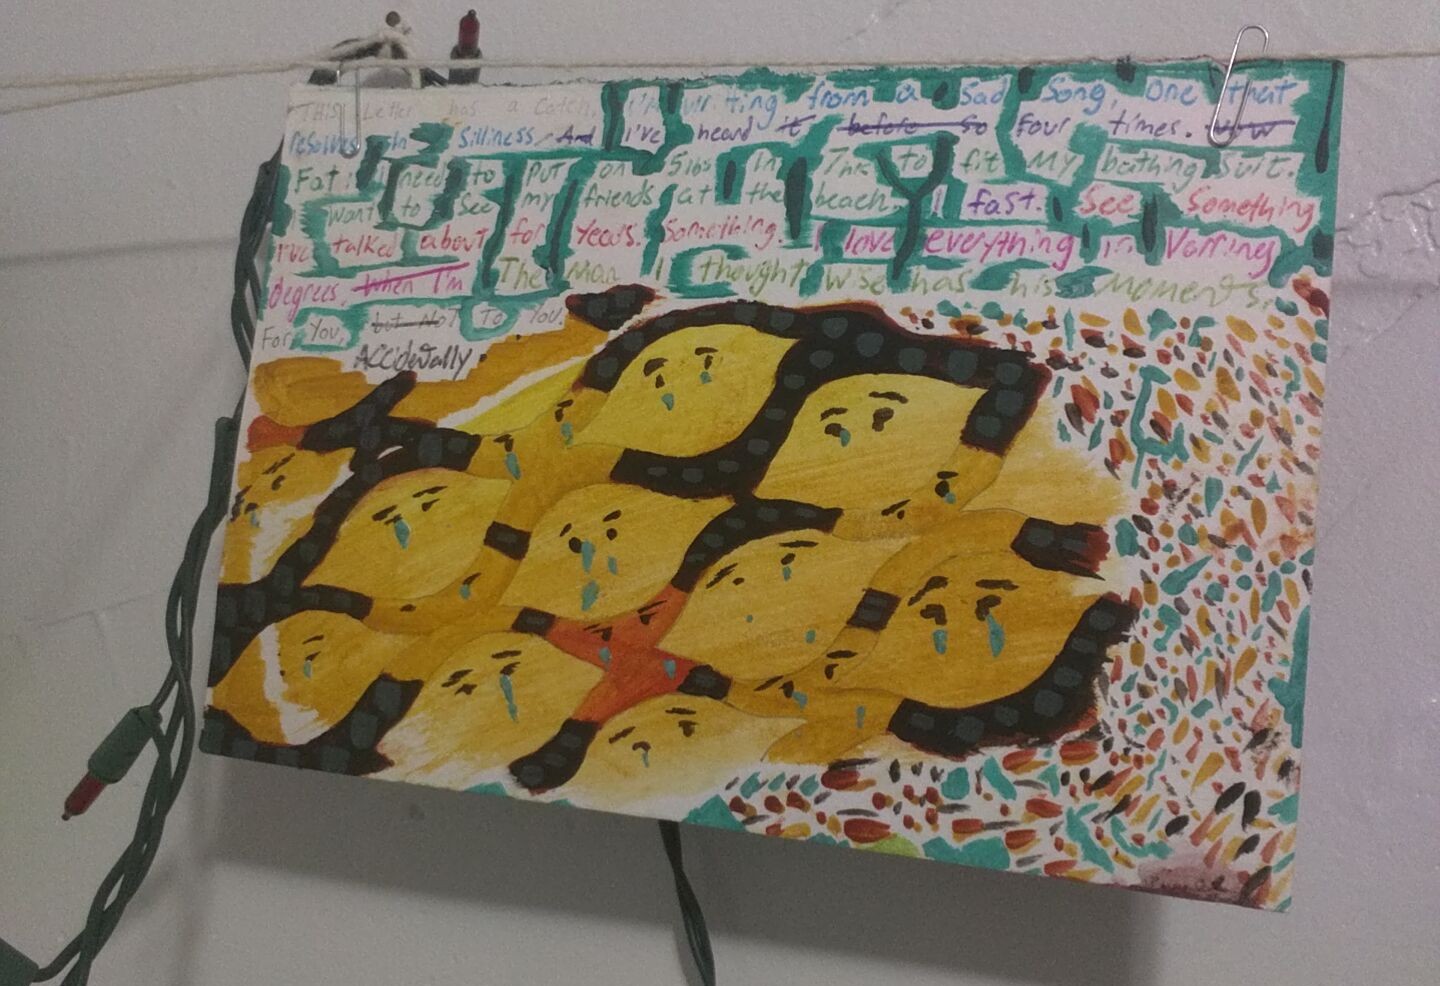 THIS Letter has a catch, I'm writing from a Sad Song, One that
resolves in Silliness, And I've heard it before so four times. now
Fat: I need to put on 5lbs in Thr to fit My bathing Suit.
I want to see my friends at the beach. I fast. See Something
I've talked about for Years. Something. I love everything in Varring
degrees, When I'm The Man I thought wise has his Moments.
For You, but NoT To You,
ACCideNally